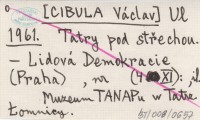 [CIBULA Václav] Ul
1961. Tatry pod střechou.
– Lidová Demokracie
(Praha), nr (4 XI); il
Muzeum TANAPu w Tatrz.
Łomnicy.